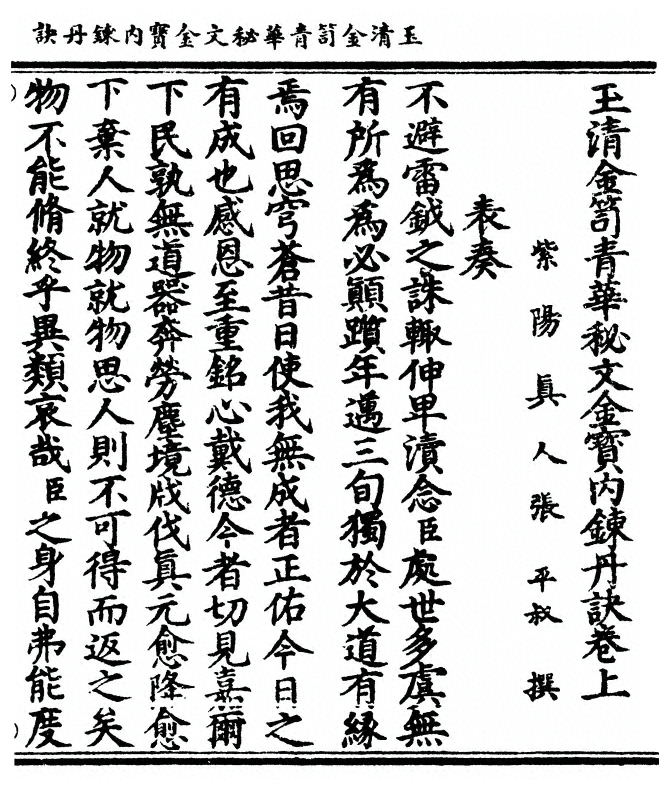 玉清金笥青華秘文金寶內鍊丹訣
玉清金笥青華秘文金寶內鍊丹訣卷上
紫陽眞人張平叔撰
表奏
不避雷鉞之誅輙伸卑瀆念臣處世多虞無
有所爲爲必顚躓年邁三旬獨於大道有緣
焉回思穹蒼昔日使我無成者正佑今日之
有成也感恩至重銘心戴德今者切見嘉爾
下民孰無道器奔勞塵境戕伐眞元愈隆愈
下棄人就物就物思人則不可得而返之矣
物不能脩終乎異類哀哉臣之身自弗能度